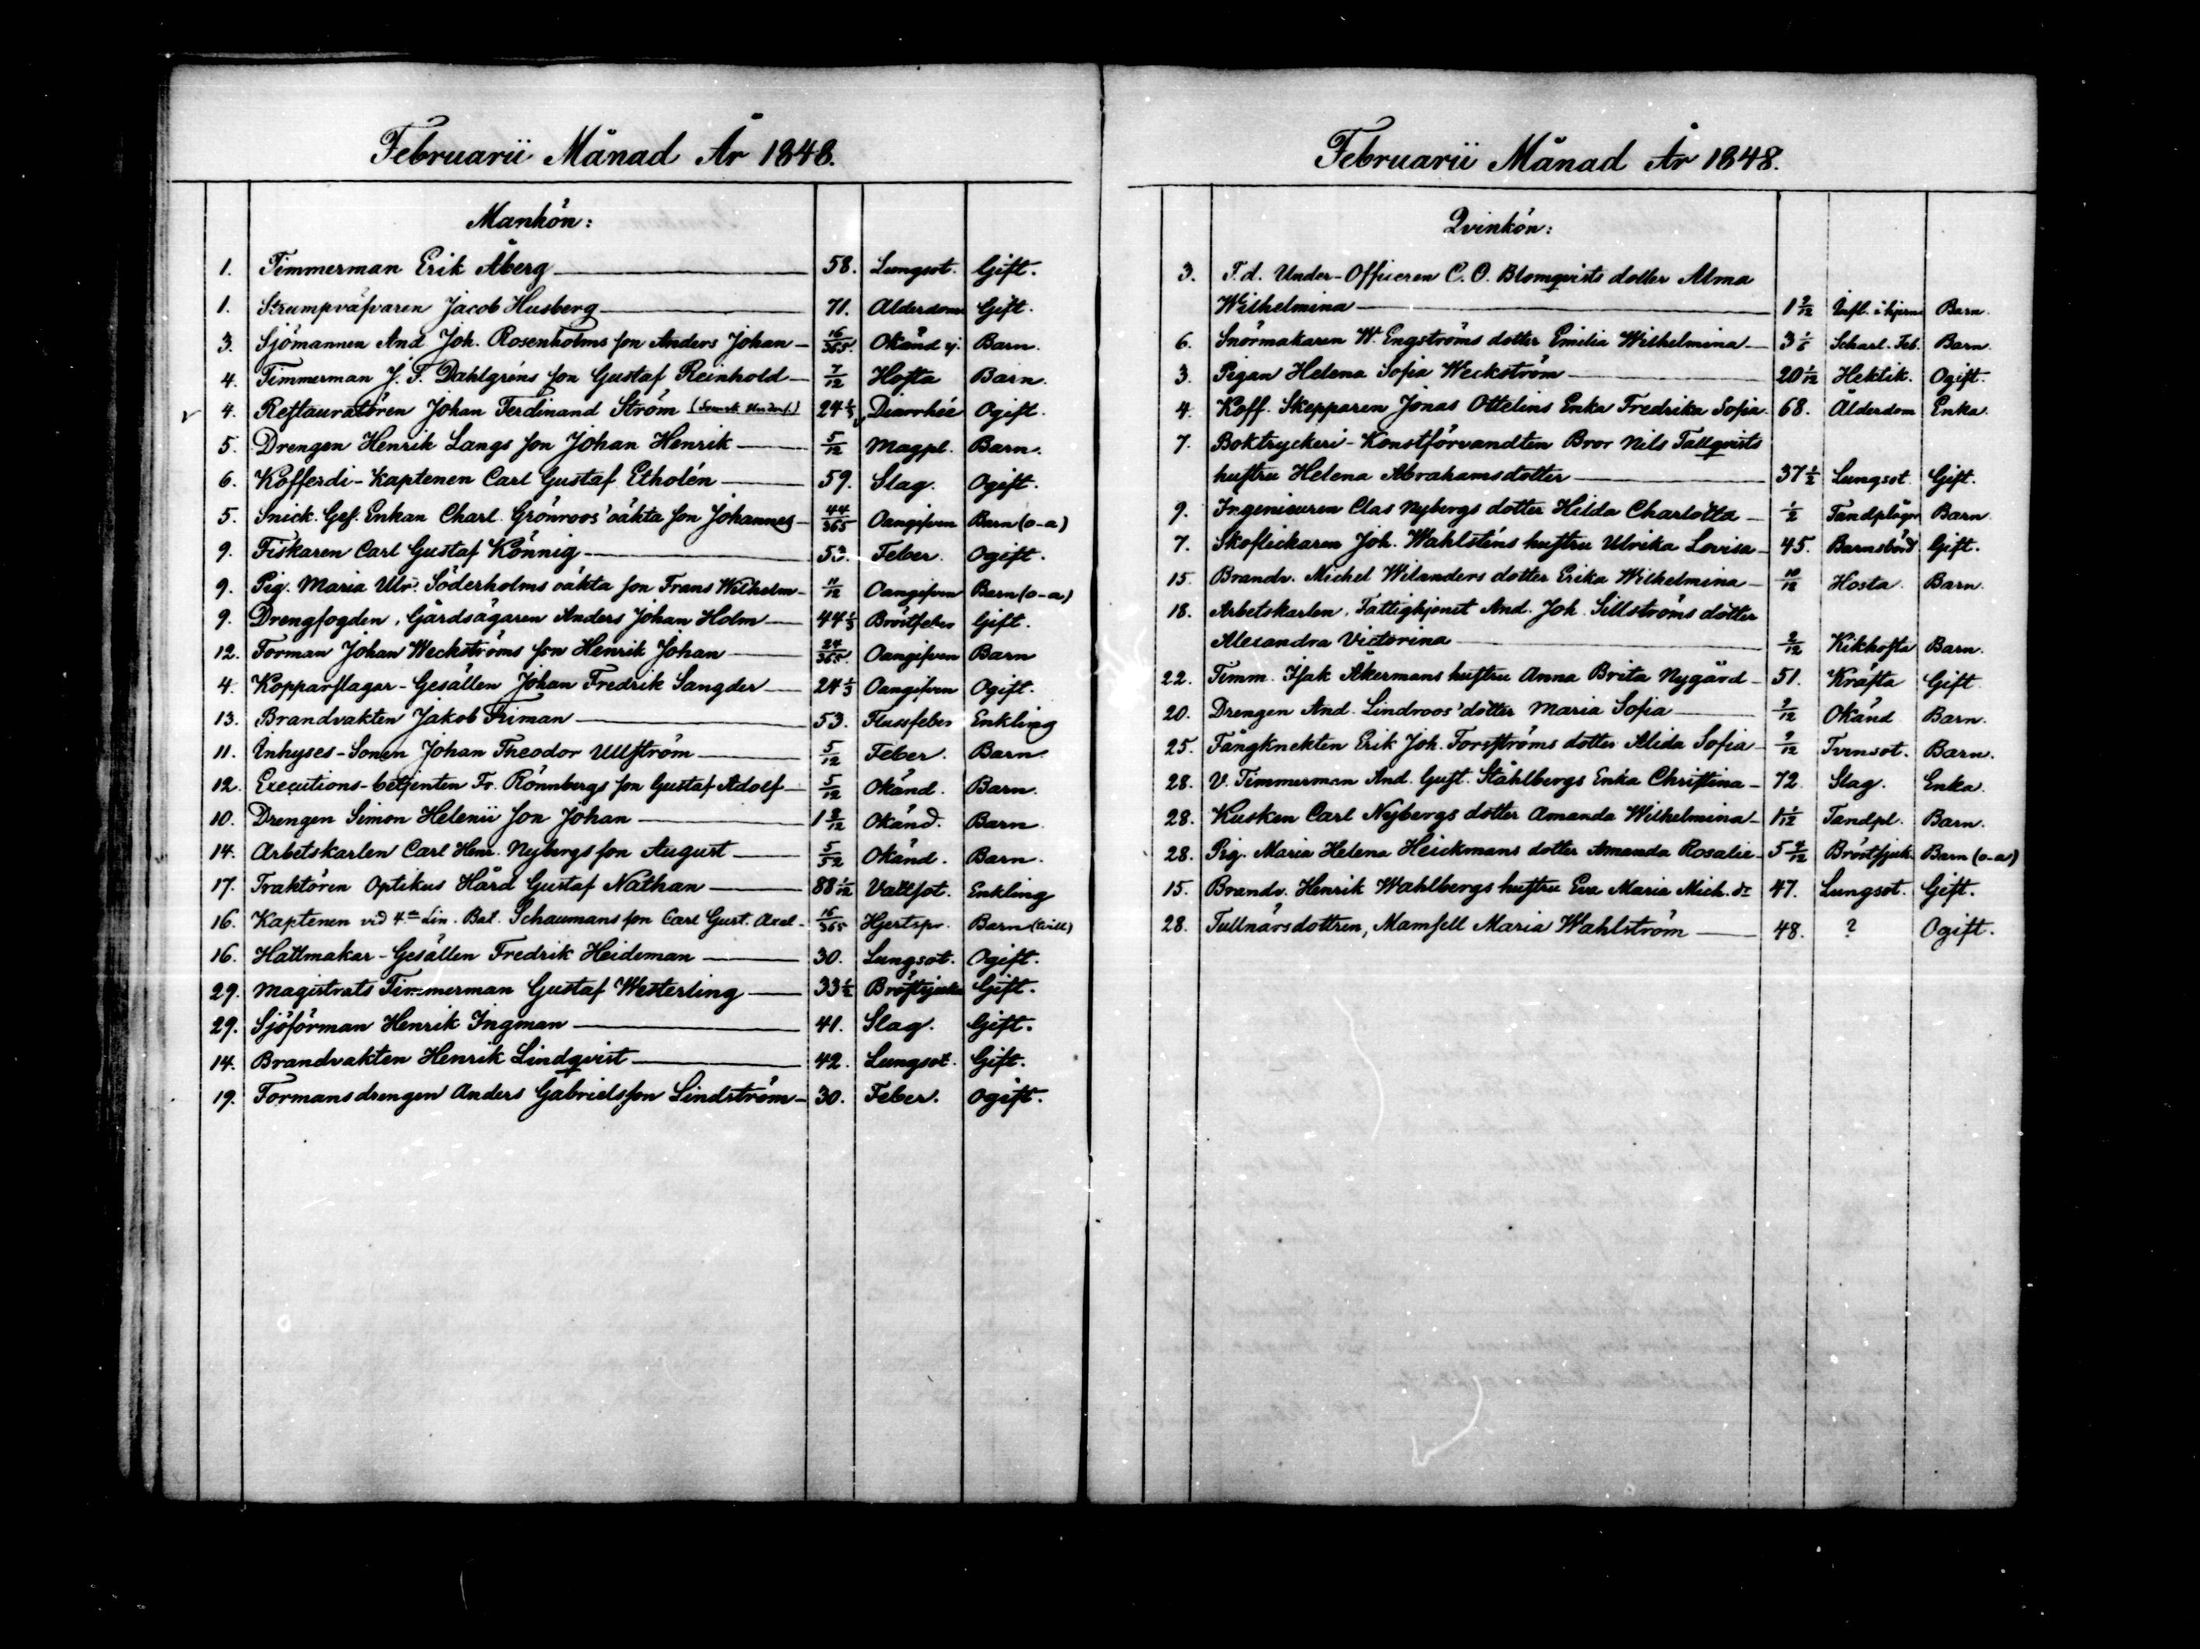 Februarii Månad År 1848.
Mankön:
1. Timmerman Erik Åberg 58. Lungsot. Gift.
1. Strumpväfvaren Jacob Husberg 71. Ålderdom Gift.
3. Sjömannen And Joh. Rosenholms son Anders Johan 16/365. Okänd sj. Barn.
4. Timmerman J. F. Dahlgréns son Gustaf Reinhold 7/12 Hosta Barn.
4. Restauratören Johan Ferdinand Ström (Svensk Unders.) 24 1/3 Diarrhée Ogift.
5. Drengen Henrik Langs son Johan Henrik 5/12 Magpl. Barn.
6. Kofferdi-Kaptenen Carl Gustaf Etholén 59. Slag. Ogift.
5. Snick. Ges. Enkan Charl. Grönroos' oäkta son Johannes 44/365 Oangifven Barn (o-a)
9. Fiskaren Carl Gustaf Könnig 53. Feber. Ogift.
9. Pig. Maria Ulr. Söderholms oäkta son Frans Wilhelm 11/12 Oangifven Barn (o-a)
9. Drengfogden, Gårdsägaren Anders Johan Holm 44 1/3 Bröstfeber Gift.
12. Forman Johan Weckströms son Henrik Johan 24/365. Oangifven Barn
4. Kopparslagar-Gesällen Johan Fredrik Sangder 24 1/3 Oangifven Ogift.
13. Brandvakten Jakob Friman 53. Flussfeber Enkling
11. Inhyses-Sonen Johan Theodor Ullström 5/12 Feber. Barn.
12. Executions-betjenten Fr. Rönnbergs son Gustaf Adolf 5/12 Okänd. Barn.
10. Drengen Simon Helenii son Johan 1 2/12 Okänd. Barn.
14. Arbetskarlen Carl Henr. Nybergs son August 5/52 Okänd. Barn.
17. Traktören Optikus Hård Gustaf Nathan 88 1/12 Vattsot. Enkling
16. Kaptenen vid 4de Lin. Bat. Schaumans son Carl Gust. Axel 16/365 Hjertspr. Barn (Civill)
16. Hattmakar-Gesällen Fredrik Heideman 30. Lungsot. Ogift.
29. Magistrats Timmerman Gustaf Westerling 33 1/2 Bröstsjuka Gift.
29. Sjöförman Henrik Ingman 41. Slag. Gift.
14. Brandvakten Henrik Lindqvist 42. Lungsot. Gift.
19. Formansdrengen Anders Gabrielsson Lindström 30. Feber. Ogift.
Februarii Månad År 1848.
Qvinkön:
3. F.d. Under-Officeren C. O. Blomqvists dotter Alma
Wilhelmina 1 2/12 Infl. i hjern Barn.
6. Snörmakaren W. Engströms dotter Emilia Wilhelmina 3 1/6 Scharl. Feb. Barn.
3. Pigan Helena Sofia Weckström 20 1/12 Hektik. Ogift.
4. Koff. Skepparen Jonas Ottelins Enka Fredrika Sofia 68. Ålderdom Enka.
7. Boktryckeri-Konstförvandten Bror Nils Tallqvists
hustru Helena Abrahamsdotter 37 1/2 Lungsot Gift.
9. Ingenieuren Clas Nybergs dotter Hilda Charlotta 1/2 Tandplågor Barn
7. Skoflickaren Joh. Wahlsténs hustru Ulrika Lovisa 45. Barnsbörd Gift.
15. Brandv. Michel Wilanders dotter Erika Wilhelmina 10/12 Hosta. Barn.
18. Arbetskarlen, Fattighjonet And. Joh. Sillströms dotter
Alexandra Victorina 2/12 Kikhosta Barn.
22. Timm. Isak Åkermans hustru Anna Brita Nygård 51. Kräfta Gift.
20. Drengen And. Lindroos' dotter Maria Sofia 2/12 Okänd Barn.
25. Fångknekten Erik Joh. Forsströms dotter Alida Sofia 9/12 Tvinsot. Barn.
28. V. Timmerman And. Gust. Ståhlbergs Enka Christina 72. Slag. Enka.
28. Kusken Carl Nybergs dotter Amanda Wilhelmina 1 1/12 Tandpl. Barn.
28. Pig. Maria Helena Heickmans dotter Amanda Rosalie 5 2/12 Bröstsjuk. Barn (o-a)
15. Brandv. Henrik Wahlbergs hustru Eva Maria Mich. dr 47. Lungsot. Gift.
28. Tullnärsdottren, Mamsell Maria Wahlström 48. ? Ogift.